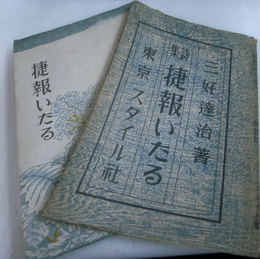 三好達治著
詩集
捷報いたる
東京 スタイル社
捷報いたる